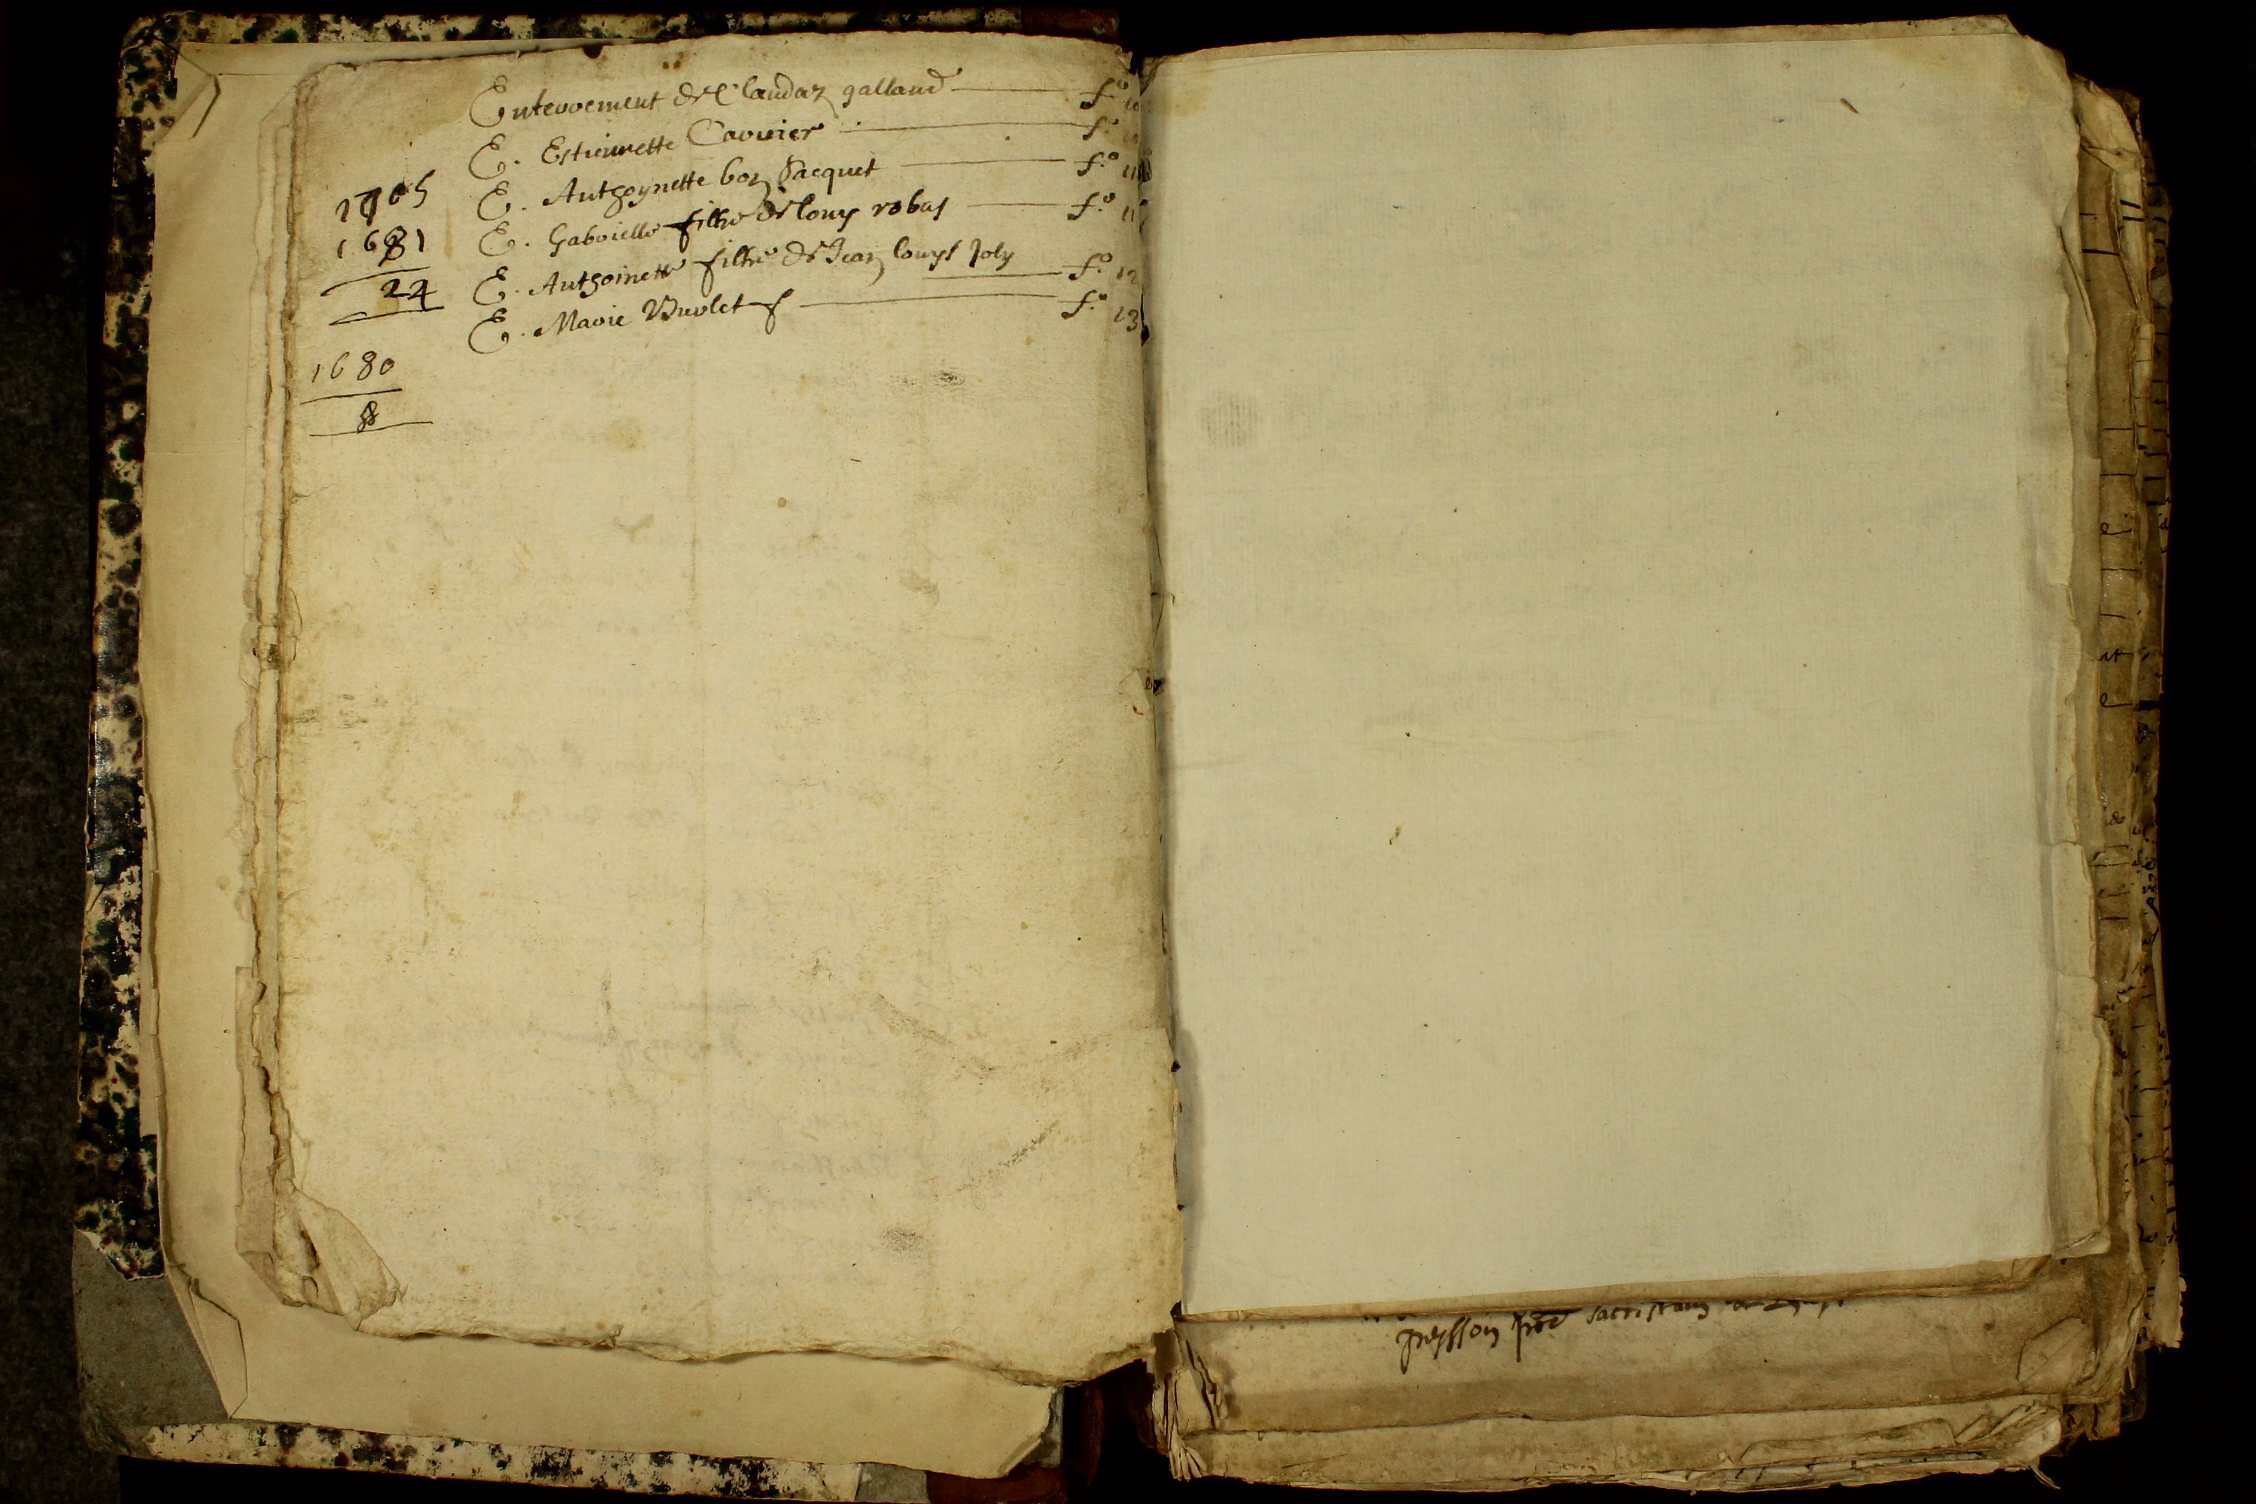 Enterrement de Claudaz galland fo. 10
E. Estiennette Carrier fo.
E. Anthoynette bon Jacquet fo. 11
E. Gabrielle filhe de louys robas fo. 11
E. Anthoinette filhe de Jean louys Joly fo. 12
E. Marie Vuolet fo. 13
1705
1681
24
1680
8
prebstre sacristain